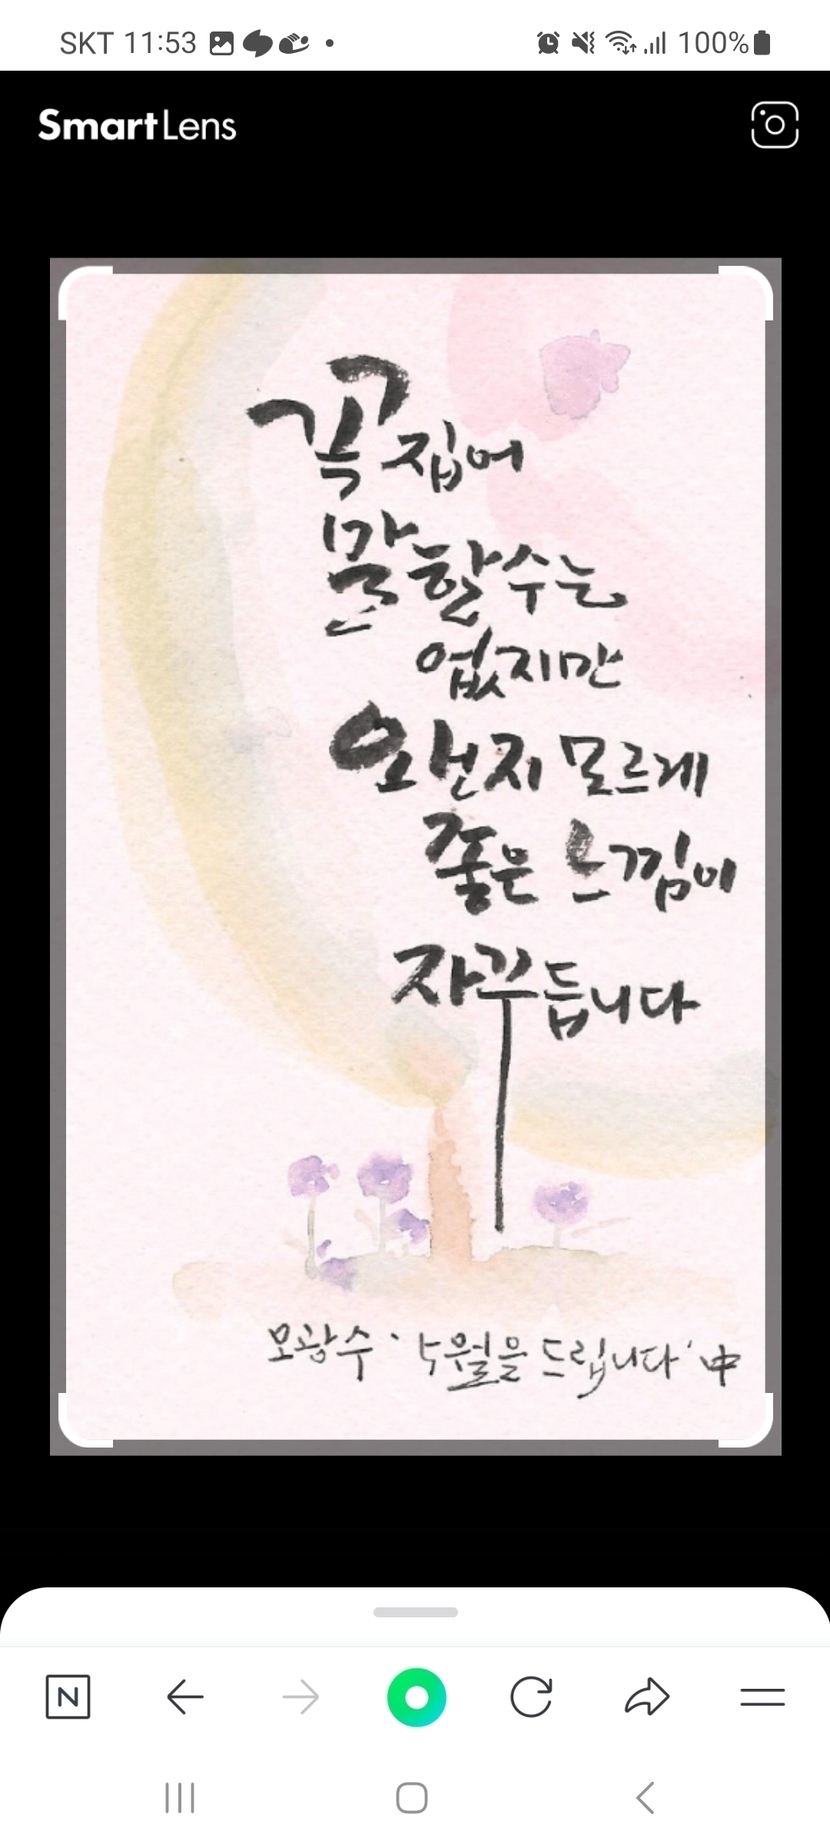 SKT 11:53
100%
SmartLens
꼭 집어
말할 수는
없지만
왠지 모르게
좋은 느낌이
자꾸 듭니다
오광수 '5월을 드립니다' 中
N